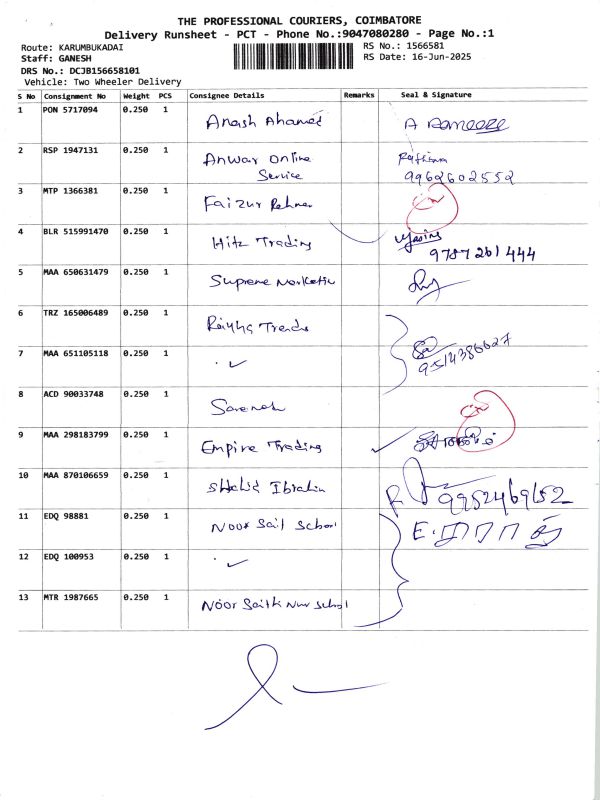 THE PROFESSIONAL COURIERS, COIMBATORE
Delivery Runsheet - PCT - Phone No.:9047080280 - Page No.:1
Route: KARUMBUKADAI
RS No.: 1566581
Staff: GANESH
RS Date: 16-Jun-2025
DRS No.: DCJB156658101
Vehicle: Two Wheeler Delivery
S No Consignment No Weight PCS Consignee Details Remarks Seal & Signature
1 PON 5717094 0.250 1 Anash Ahamed A Rameeze
2 RSP 1947131 0.250 1 Anwar Online
Service 9962602552
3 MTP 1366381 0.250 1 Faizur Rehman
4 BLR 515991470 0.250 1 Hitz Trading
9787261444
5 MAA 650631479 0.250 1 Supreme Marketin
6 TRZ 165006489 0.250 1 Trends
7 MAA 651105118 0.250 1
9514386627
8 ACD 90033748 0.250 1
9 MAA 298183799 0.250 1 Empire Trading
10 MAA 870106659 0.250 1 Shahid Ibrahim 9952469152
11 EDQ 98881 0.250 1 Noor Sait School
12 EDQ 100953 0.250 1
13 MTR 1987665 0.250 1 Noor Saith Nur School